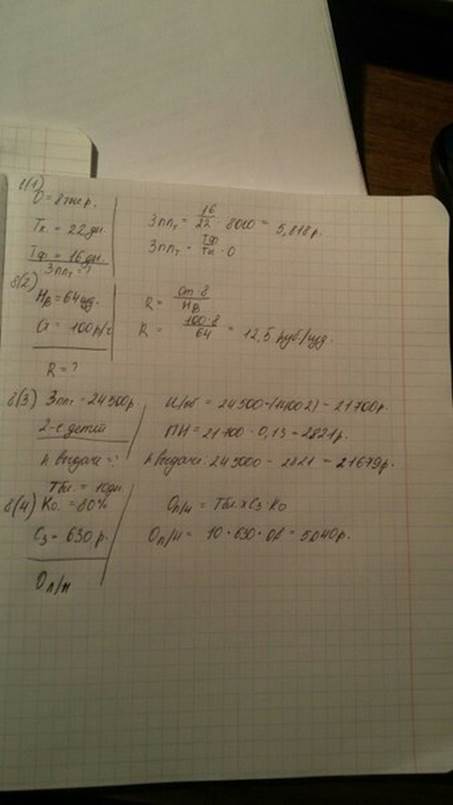 8(1)
O = 8 тыс р.
Тк = 22 дн.
Тф = 16 дн.
Зппт = ?
Зппт = 16/22 · 8000 = 5,818 р.
Зппт = Тф/Тк · O
8(2)
Нв = 64 изд.
Ст = 100 р/ч
R = ?
R = Ст·8/Нв
R = 100·8/64 = 12,5 руб/изд.
8(3) Зппт = 24500р
2-е детей
к выдаче = ?
И/об = 24500-(1400·2) = 21700р.
ПН = 21700 · 0,13 = 2821р.
к выдаче: 24500 - 2821 = 21679р.
Тбл. = 10дн.
8(4) Ко. = 80%
Сз = 630 р.
Оп/н
Оп/н = Тбл. х Сз · Ко
Оп/н = 10 · 630 · 0,8 = 5040р.